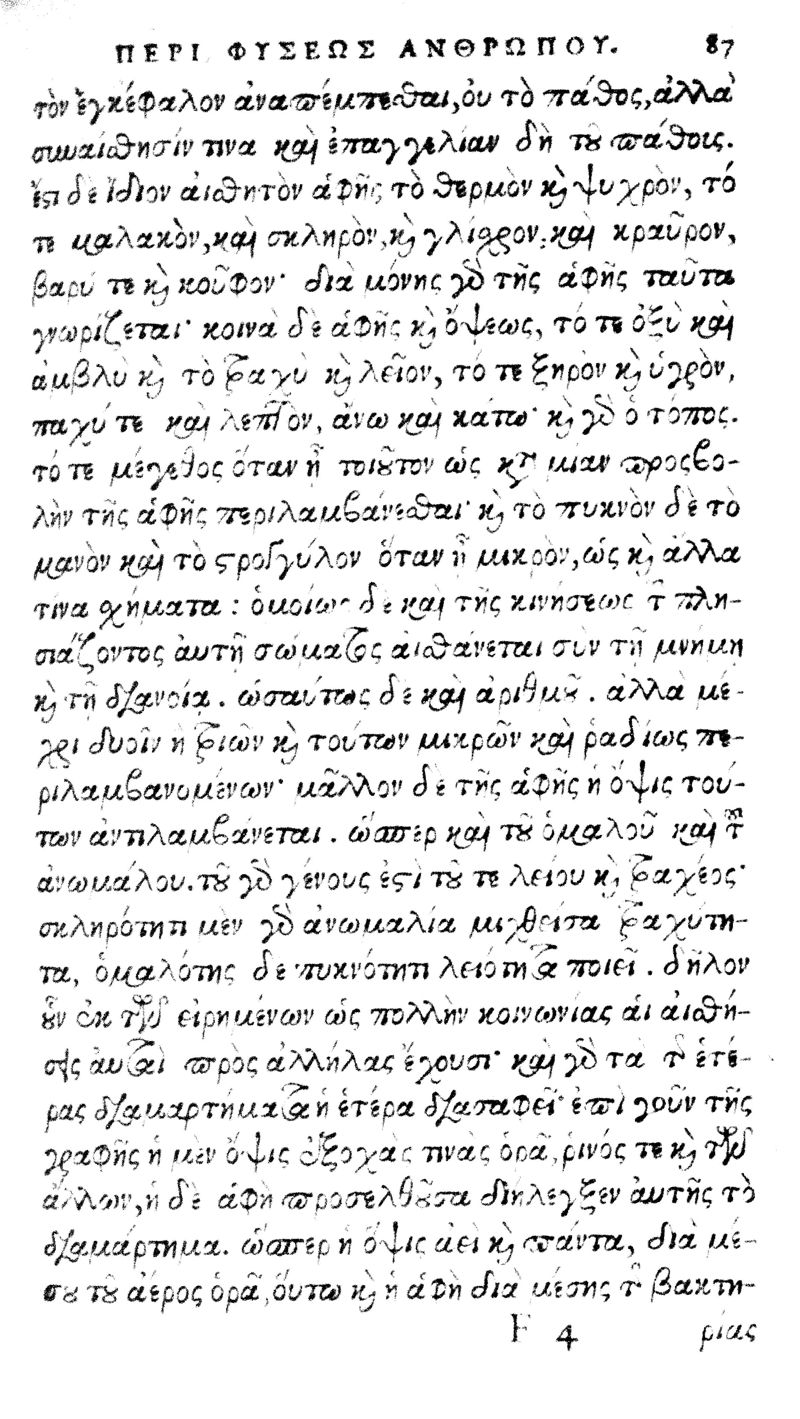 ΠΕΡΙ ΦΥΣΕΩΣ ΑΝΘΡΩΠΟΥ. 87
τὸν ἐγκέφαλον ἀναπέμπεσθαι, οὐ τὸ πάθος, ἀλλὰ
συναίσθησίν τινα καὶ ἐπαγγελίαν δὴ τοῦ πάθοις.
ἔστι δὲ ἴδιον αἰσθητὸν ἁφῆς τὸ θερμὸν καὶ ψυχρὸν, τό
τε μαλακὸν, καὶ σκληρὸν, καὶ γλίσχρον, καὶ κραῦρον,
βαρύ τε καὶ κοῦφον· διὰ μόνης γὰρ τῆς ἁφῆς ταῦτα
γνωρίζεται· κοινὰ δὲ ἁφῆς καὶ ὄψεως, τό τε ὀξὺ καὶ
ἀμβλὺ καὶ τὸ τραχὺ καὶ λεῖον, τό τε ξηρὸν καὶ ὑγρὸν,
παχύ τε καὶ λεπτὸν, ἄνω καὶ κάτω· καὶ γὰρ ὁ τόπος.
τό τε μέγεθος ὅταν ᾖ τοιοῦτον ὡς κατὰ μίαν προσβο-
λὴν τῆς ἁφῆς περιλαμβάνεσθαι· καὶ τὸ πυκνὸν δὲ τὸ
μανὸν καὶ τὸ στρογγύλον ὅταν ᾖ μικρὸν, ὡς καὶ ἄλλα
τινα σχήματα : ὁμοίως δὲ καὶ τῆς κινήσεως τοῦ πλη-
σιάζοντος αὐτῇ σώματος αἰσθάνεται σὺν τῇ μνήμῃ
καὶ τῇ διανοίᾳ. ὡσαύτως δὲ καὶ ἀριθμοῦ. ἀλλὰ μέ-
χρι δυοῖν ἢ τριῶν καὶ τούτων μικρῶν καὶ ῥαδίως πε-
ριλαμβανομένων· μᾶλλον δὲ τῆς ἁφῆς ἡ ὄψις τού-
των ἀντιλαμβάνεται. ὥσπερ καὶ τοῦ ὁμαλοῦ καὶ τοῦ
ἀνωμάλου. τοῦ γὰρ γένους ἐστὶ τοῦ τε λείου καὶ τραχέος·
σκληρότητι μὲν γὰρ ἀνωμαλία μιχθεῖσα τραχύτη-
τα, ὁμαλότης δὲ πυκνότητι λειότητα ποιεῖ. δῆλον
οὖν ἐκ τῶν εἰρημένων ὡς πολλὴν κοινωνίας αἱ αἰσθή-
σεις αὗται πρὸς ἀλλήλας ἔχουσι· καὶ γὰρ τὰ τῆς ἑτέ-
ρας διαμαρτήματα ἡ ἑτέρα διασαφεῖ· ἐπὶ γοῦν τῆς
γραφῆς ἡ μὲν ὄψις ἐξοχάς τινας ὁρᾷ, ῥινός τε καὶ τῶν
ἄλλων, ἡ δὲ ἁφὴ προσελθοῦσα διήλεγξεν αὐτῆς τὸ
διαμάρτημα. ὥσπερ ἡ ὄψις ἀεὶ καὶ πάντα, διὰ μέ-
σου τοῦ ἀέρος ὁρᾷ, οὕτω καὶ ἡ ἁφὴ διὰ μέσης τῆς βακτη-
F 4 ρίας